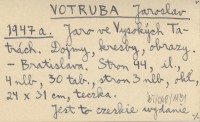 VOTRUBA Jaroslav
1947a. Jaro ve Vysokých Ta-
trách. Dojmy, kresby, obrazy.
- Bratislava. Stron 44, il.,
4 nlb., 30 tab., stron 3 nlb., okł.,
24 x 31 cm, teczka.
Jest to czeskie wydanie